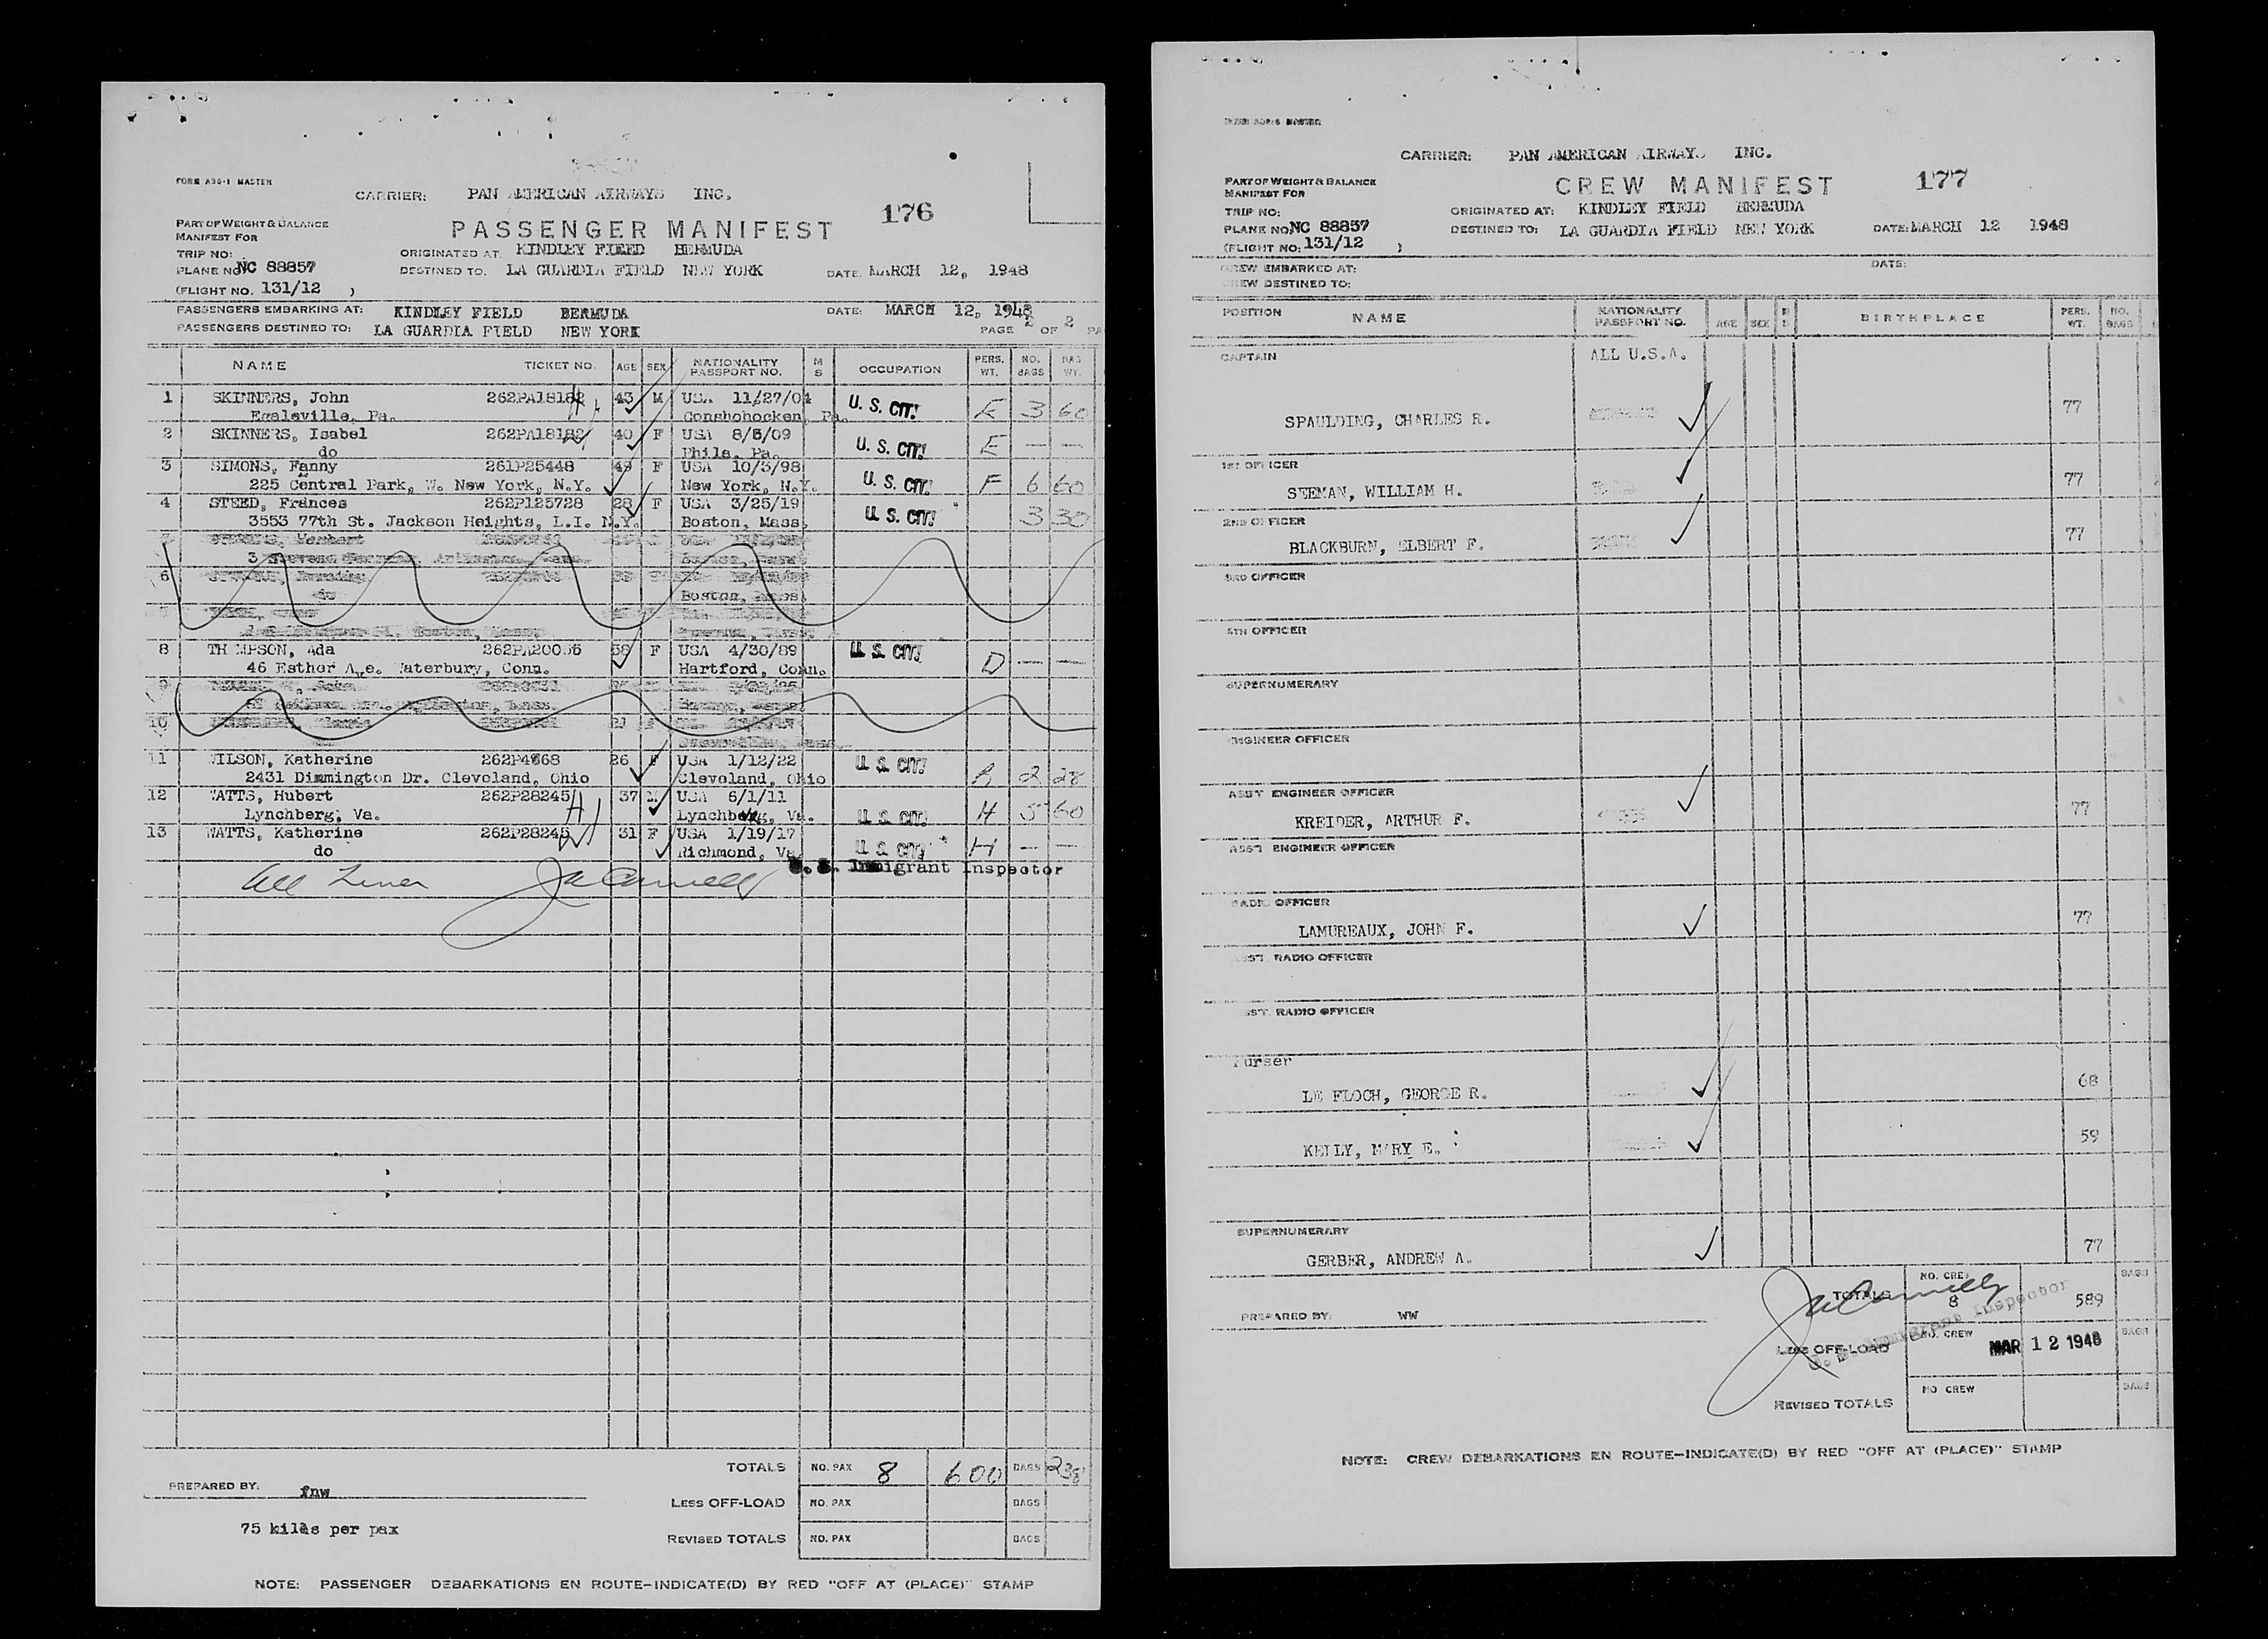 FORM A36-1 MASTER
CARRIER: PAN AMERICAN AIRWAYS INC.
176
PART OF WEIGHT & BALANCE
MANIFEST FOR
PASSENGER MANIFEST
TRIP NO:
ORIGINATED AT. KINDLEY FIELD BERMUDA
PLANE NO NC 88857
DESTINED TO. LA GUARDIA FIELD NEW YORK DATE. MARCH 12, 1948
(FLIGHT NO. 131/12 )
PASSENGERS EMBARKING AT: KINDLEY FIELD BERMUDA DATE: MARCH 12, 1948
PASSENGERS DESTINED TO: LA GUARDIA FIELD NEW YORK PAGE 2 OF 2
NAME TICKET NO. AGE SEX NATIONALITY PASSPORT NO. M S OCCUPATION PERS. WT. NO. BAGS BAG WT.
1 SKINNERS, John 262PA18182 43 M USA 11/27/04 U. S. CIT! E 3 60
Egaleville, Pa. Conshohocken, Pa.
2 SKINNERS, Isabel 262PA18182 40 F USA 8/5/09 U. S. CIT! E — —
do Phila. Pa.
3 SIMONS, Fanny 261P25448 49 F USA 10/3/98 U. S. CIT! F 6 60
225 Central Park, W. New York, N.Y. New York, N.Y.
4 STEED, Frances 262P125728 28 F USA 3/25/19 U. S. CIT! 3 30
3553 77th St. Jackson Heights, L.I. N.Y. Boston, Mass.
6
do Boston,
8 TH MPSON, Ada 58 F USA 4/30/89 U. S. CIT! D — —
46 Esther A e. aterbury, Conn. Hartford, Conn.
9
10
11 WILSON, Katherine 262P4868 26 F USA 1/12/22 U. S. CIT! 2 28
2431 Dimmington Dr. Cleveland, Ohio Cleveland, Ohio
12 WATTS, Hubert 262P28245 37 M USA 6/1/11 U. S. CIT! H 5 60
Lynchberg, Va. Lynchberg, Va.
13 WATTS, Katherine 262P28245 31 F USA 1/19/17 U. S. CIT! H — —
do Richmond, Va.
U. S. Immigrant Inspector
TOTALS NO. PAX 8 600 BAGS 238
PREPARED BY. fnw
LESS OFF-LOAD NO. PAX BAGS
75 kilos per pax
REVISED TOTALS NO. PAX BAGS
NOTE: PASSENGER DEBARKATIONS EN ROUTE-INDICATE(D) BY RED "OFF AT (PLACE)" STAMP
CARRIER: PAN AMERICAN AIRWAYS INC.
PART OF WEIGHT & BALANCE
MANIFEST FOR
CREW MANIFEST
177
TRIP NO:
ORIGINATED AT: KINDLEY FIELD BERMUDA
PLANE NO: NC 88857
DESTINED TO: LA GUARDIA FIELD NEW YORK DATE: MARCH 12 1948
(FLIGHT NO: 131/12 )
CREW EMBARKED AT: DATE:
CREW DESTINED TO:
POSITION NAME NATIONALITY PASSPORT NO. AGE SEX M S BIRTHPLACE PERS. WT. NO. BAGS
CAPTAIN ALL U.S.A.
SPAULDING, CHARLES R. 77
1ST OFFICER
SEEMAN, WILLIAM H. 77
2ND OFFICER
BLACKBURN, ELBERT F. 77
3RD OFFICER
4TH OFFICER
SUPERNUMERARY
ENGINEER OFFICER
ASS'T ENGINEER OFFICER
KREIDER, ARTHUR F. 77
ASS'T ENGINEER OFFICER
RADIO OFFICER
LAMUREAUX, JOHN F. 77
ASST. RADIO OFFICER
ASST. RADIO OFFICER
Purser
LE FLOCH, GEORGE R. 68
KELLY, MARY E. 59
SUPERNUMERARY
GERBER, ANDREW A. 77
TOTALS NO. CREW 8 589 BAGS
PREPARED BY: WW
U. S. Immigrant Inspector
LESS OFF-LOAD NO. CREW MAR 12 1948 BAGS
REVISED TOTALS NO CREW BAGS
NOTE: CREW DEBARKATIONS EN ROUTE-INDICATE(D) BY RED "OFF AT (PLACE)" STAMP